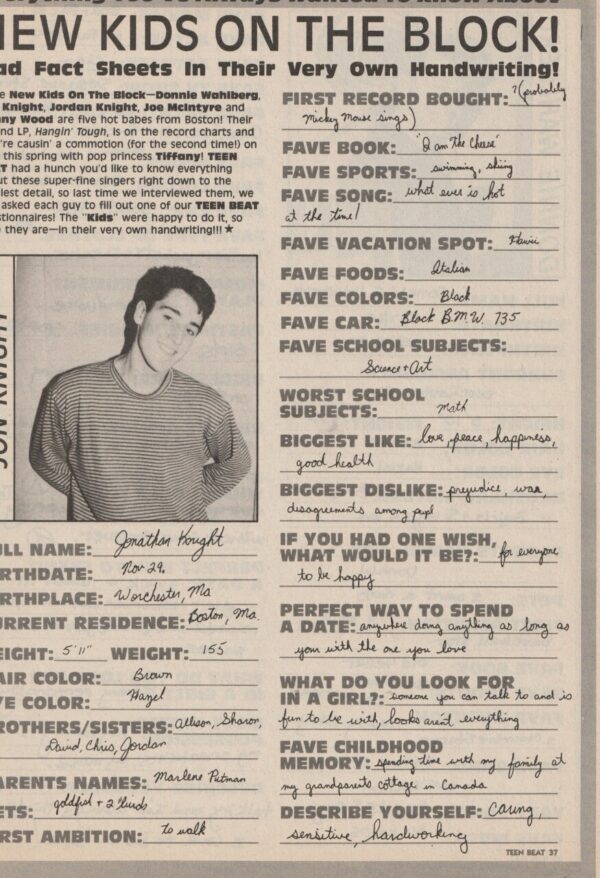 Everything You've Always Wanted To Know About
NEW KIDS ON THE BLOCK!
ad Fact Sheets In Their Very Own Handwriting!
e New Kids On The Block—Donnie Wahlberg,
Knight, Jordan Knight, Joe McIntyre and
ny Wood are five hot babes from Boston! Their
nd LP, Hangin' Tough, is on the record charts and
're causin' a commotion (for the second time!) on
this spring with pop princess Tiffany! TEEN
T had a hunch you'd like to know everything
ut these super-fine singers right down to the
lest detail, so last time we interviewed them, we
asked each guy to fill out one of our TEEN BEAT
stionnaires! The "Kids" were happy to do it, so
they are—in their very own handwriting!!! ★
JON KNIGHT
ULL NAME: Jonathan Knight
RTHDATE: Nov 29.
RTHPLACE: Worchester, Ma
URRENT RESIDENCE: Boston, Ma.
EIGHT: 5'11" WEIGHT: 155
AIR COLOR: Brown
YE COLOR: Hazel
ROTHERS/SISTERS: Allison, Sharon,
David, Chris, Jordan
ARENTS NAMES: Marlene Putman
ETS: goldfish + 2 birds
RST AMBITION: to walk
FIRST RECORD BOUGHT: ? (probably
Mickey Mouse sings)
FAVE BOOK: "I am The Cheese"
FAVE SPORTS: swimming, skiing
FAVE SONG: what ever is hot
at the time!
FAVE VACATION SPOT: Hawii
FAVE FOODS: Italian
FAVE COLORS: Black
FAVE CAR: Black B.M.W. 735
FAVE SCHOOL SUBJECTS:
Science + Art
WORST SCHOOL
SUBJECTS: math
BIGGEST LIKE: love, peace, happiness,
good health
BIGGEST DISLIKE: prejudice, war,
disagreements among
IF YOU HAD ONE WISH,
WHAT WOULD IT BE?: for everyone
to be happy
PERFECT WAY TO SPEND
A DATE: anywhere doing anything as long as
your with the one you love
WHAT DO YOU LOOK FOR
IN A GIRL?: someone you can talk to and is
fun to be with, looks arent everything
FAVE CHILDHOOD
MEMORY: spending time with my family at
my grandparents cottage in Canada
DESCRIBE YOURSELF: Caring,
sensitive, hardworking
TEEN BEAT 37